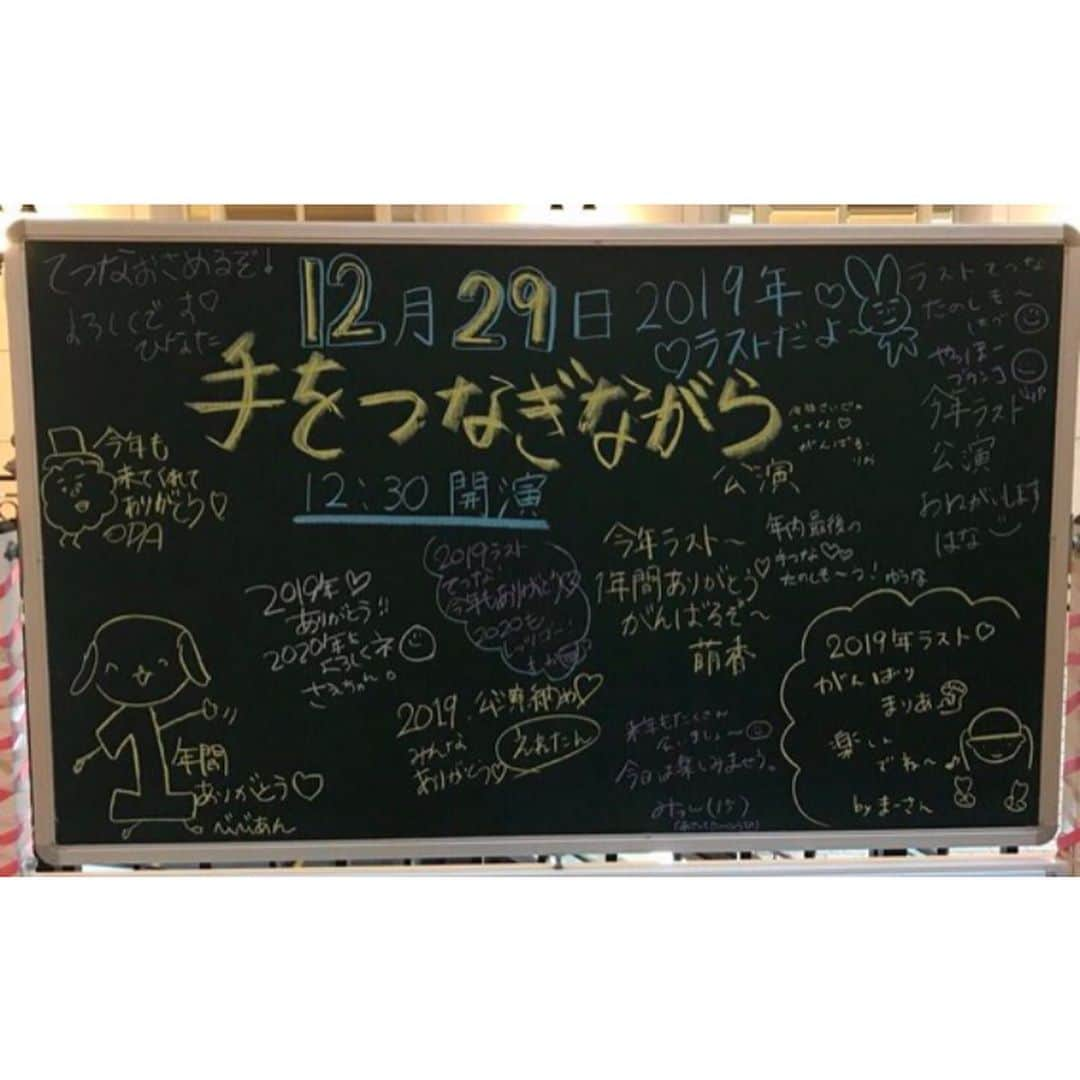 てつなおさめるぞ!
よろしくです♡
ひなた
12月29日
2019年♡
♡ラストだよ
ラストてつな
たのしも〜
はづ
手をつなぎながら
公演
12:30 開演
やっほー
今年ラスト
公演
おねがいします
はな
てつな♡
がんばる。
りお
今年も
来てくれて
ありがとう♡
ODA
今年ラスト〜
1年間ありがとう♡
がんばるぞ〜
萌香
年内最後の
てつな♡♡
たのしも〜っ!ゆうな
2019ラスト
てつな!
今年もありがとう♡
2020も
2019年♡
ありがとう!!
2020年も
よろしくネ
さきちゃん。
2019.公演納め♡
みんな
ありがとう♡
えれたん
来年もたくさん
会いましょ〜
今日は楽しみませう。
みっし(15)
2019年ラスト♡
がんばり
まりあ
楽しん
でね〜♪
byまーさん
1
年間
ありがとう♡
べべあん